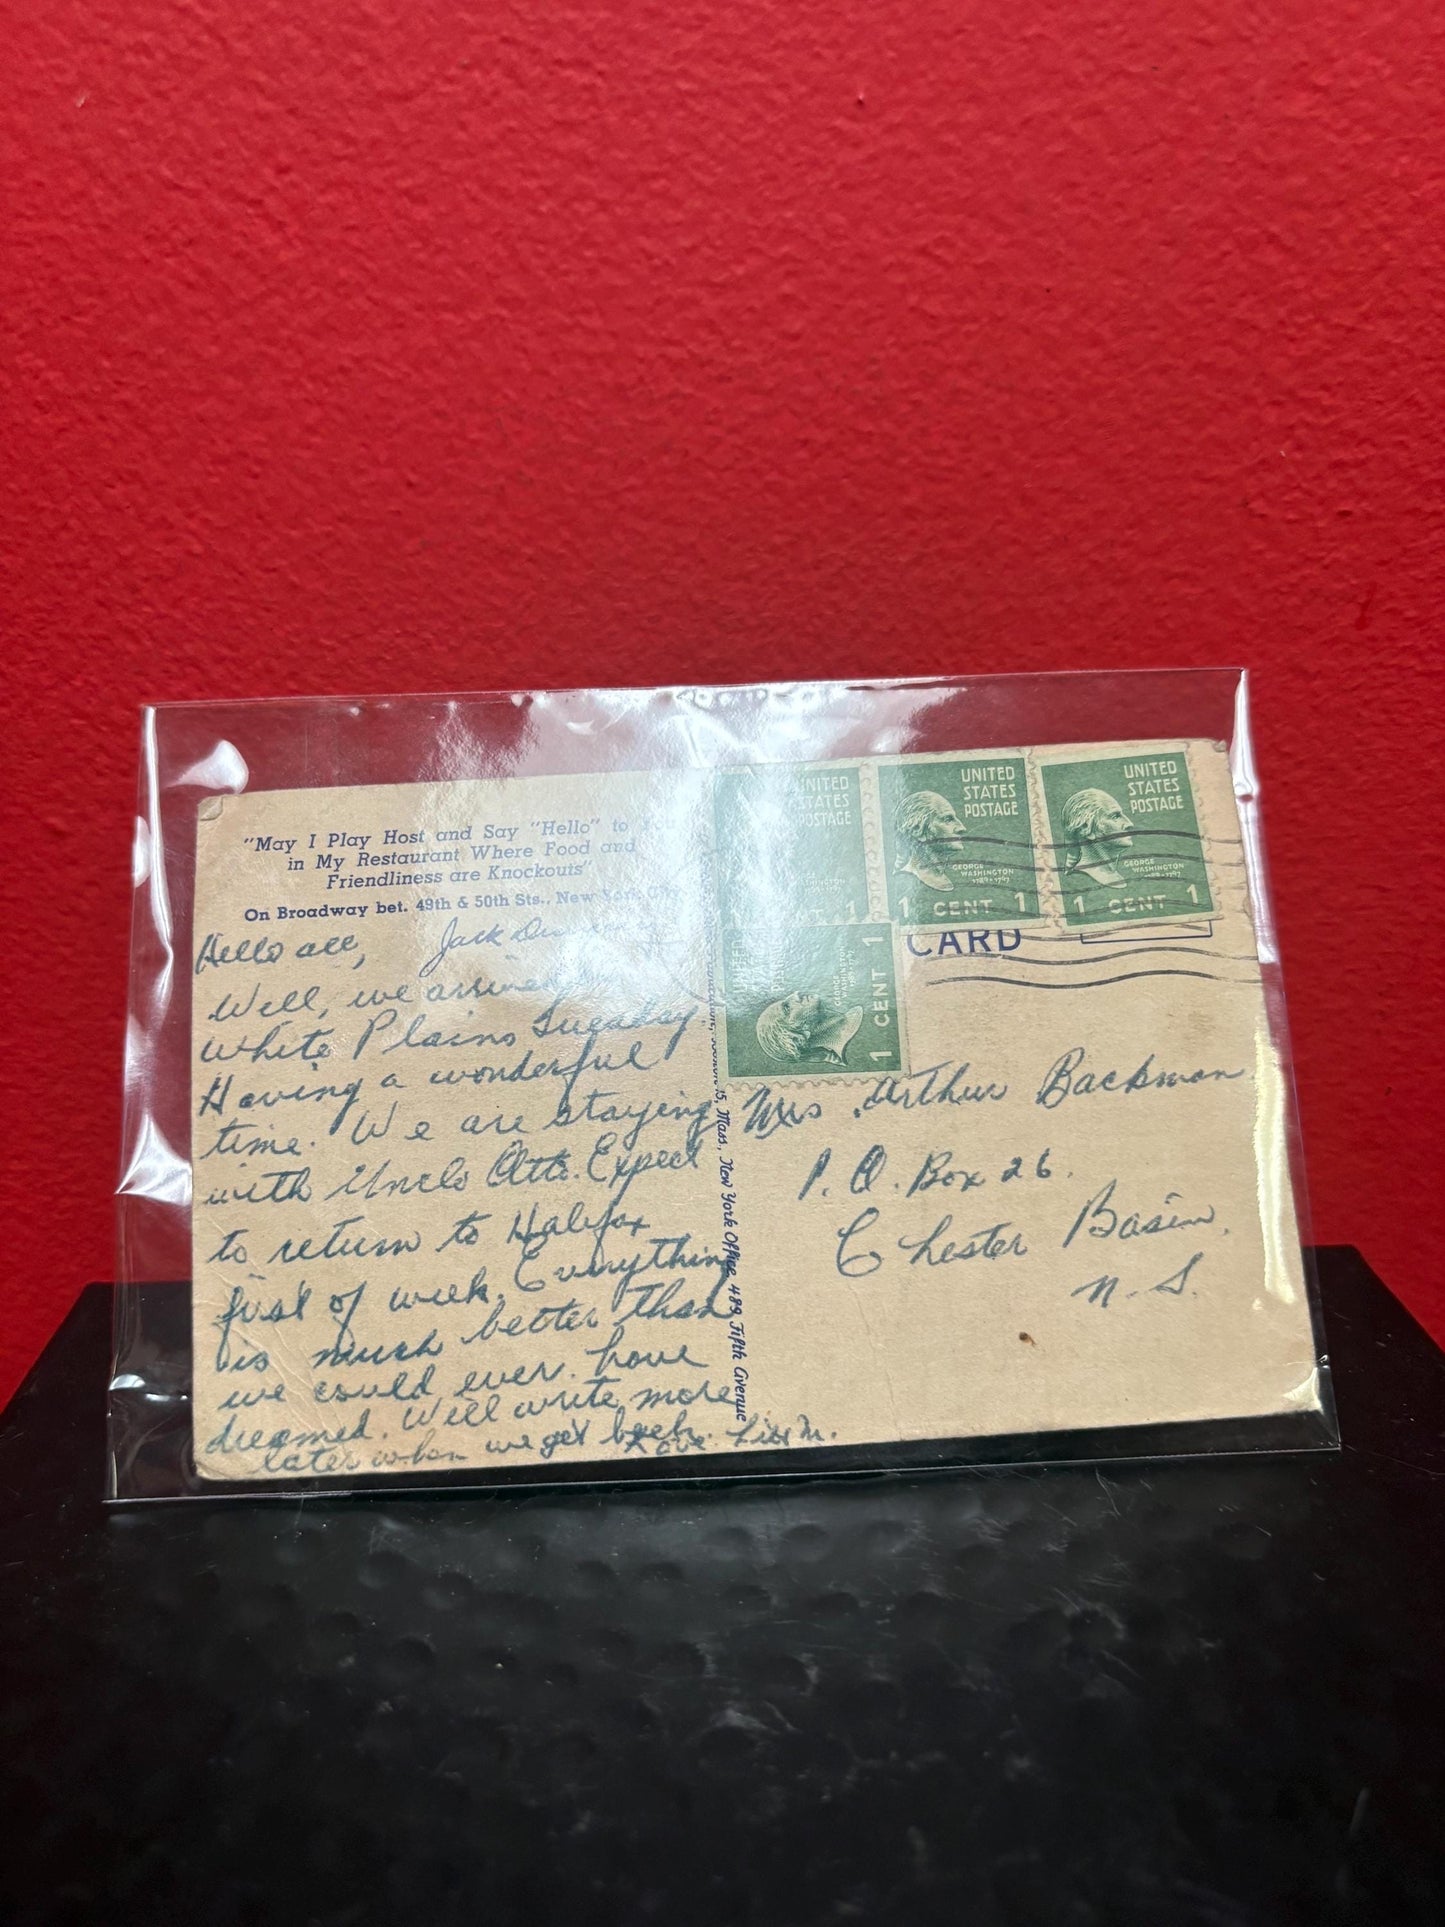 "May I Play Host and Say "Hello" to You
in My Restaurant Where Food and
Friendliness are Knockouts"
On Broadway bet. 49th & 50th Sts., New York City
Jack
Hello all,
Well, we arrived
White Plains Tuesday
Having a wonderful
time. We are staying
with Uncle Otto. Expect
to return to Halifax
first of week. Everything
is much better than
we could ever have
dreamed. Will write more
later when we get back. Love
15, Mass., New York Office, 489 Fifth Avenue
UNITED
STATES
POSTAGE
GEORGE
WASHINGTON
1 CENT 1
UNITED
STATES
POSTAGE
GEORGE
WASHINGTON
1789-1797
1 CENT 1
UNITED
STATES
POSTAGE
GEORGE
WASHINGTON
1789-1797
1 CENT 1
UNITED
STATES
POSTAGE
GEORGE
WASHINGTON
1789-1797
1 CENT 1
CARD
Mrs. Arthur Backman
P. O. Box 26.
Chester Basin,
N. S.